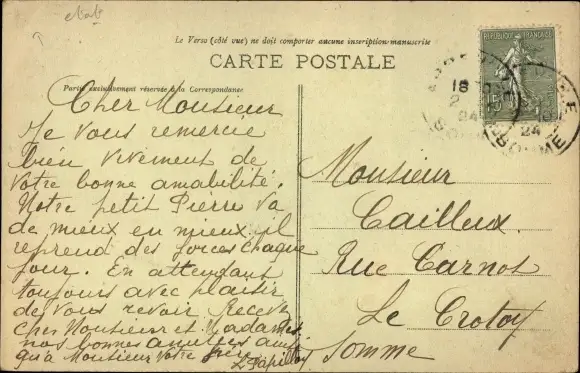 Le Verso (côté vue) ne doit comporter aucune inscription manuscrite
CARTE POSTALE
Partie exclusivement réservée à la Correspondance
REPUBLIQUE FRANÇAISE
15
Cher Monsieur
Je vous remercie
bien vivement de
votre bonne amabilité.
Notre petit Pierre va
de mieux en mieux il
reprend des forces chaque
jour. En attendant
toujours avec plaisir
de vous revoir Recevez
cher Monsieur et Madame
nos bonnes amitiés ainsi
qu'à Monsieur votre frère
L. Papillon
Monsieur
Cailleux
Rue Carnot
Le Crotoy
Somme